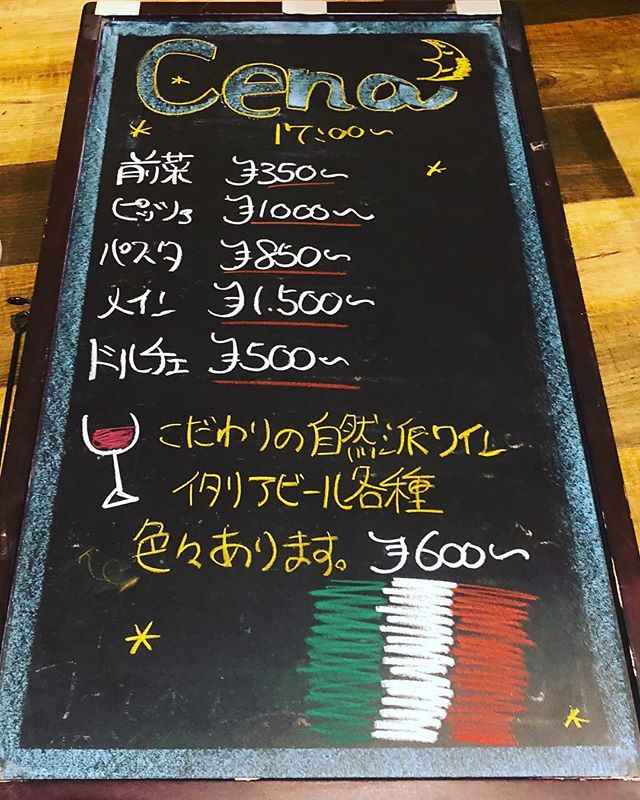 Cena
17:00〜
前菜 ¥350〜
ピッツァ ¥1000〜
パスタ ¥850〜
メイン ¥1.500〜
ドルチェ ¥500〜
こだわりの自然派ワイン
イタリアビール各種
色々あります。 ¥600〜